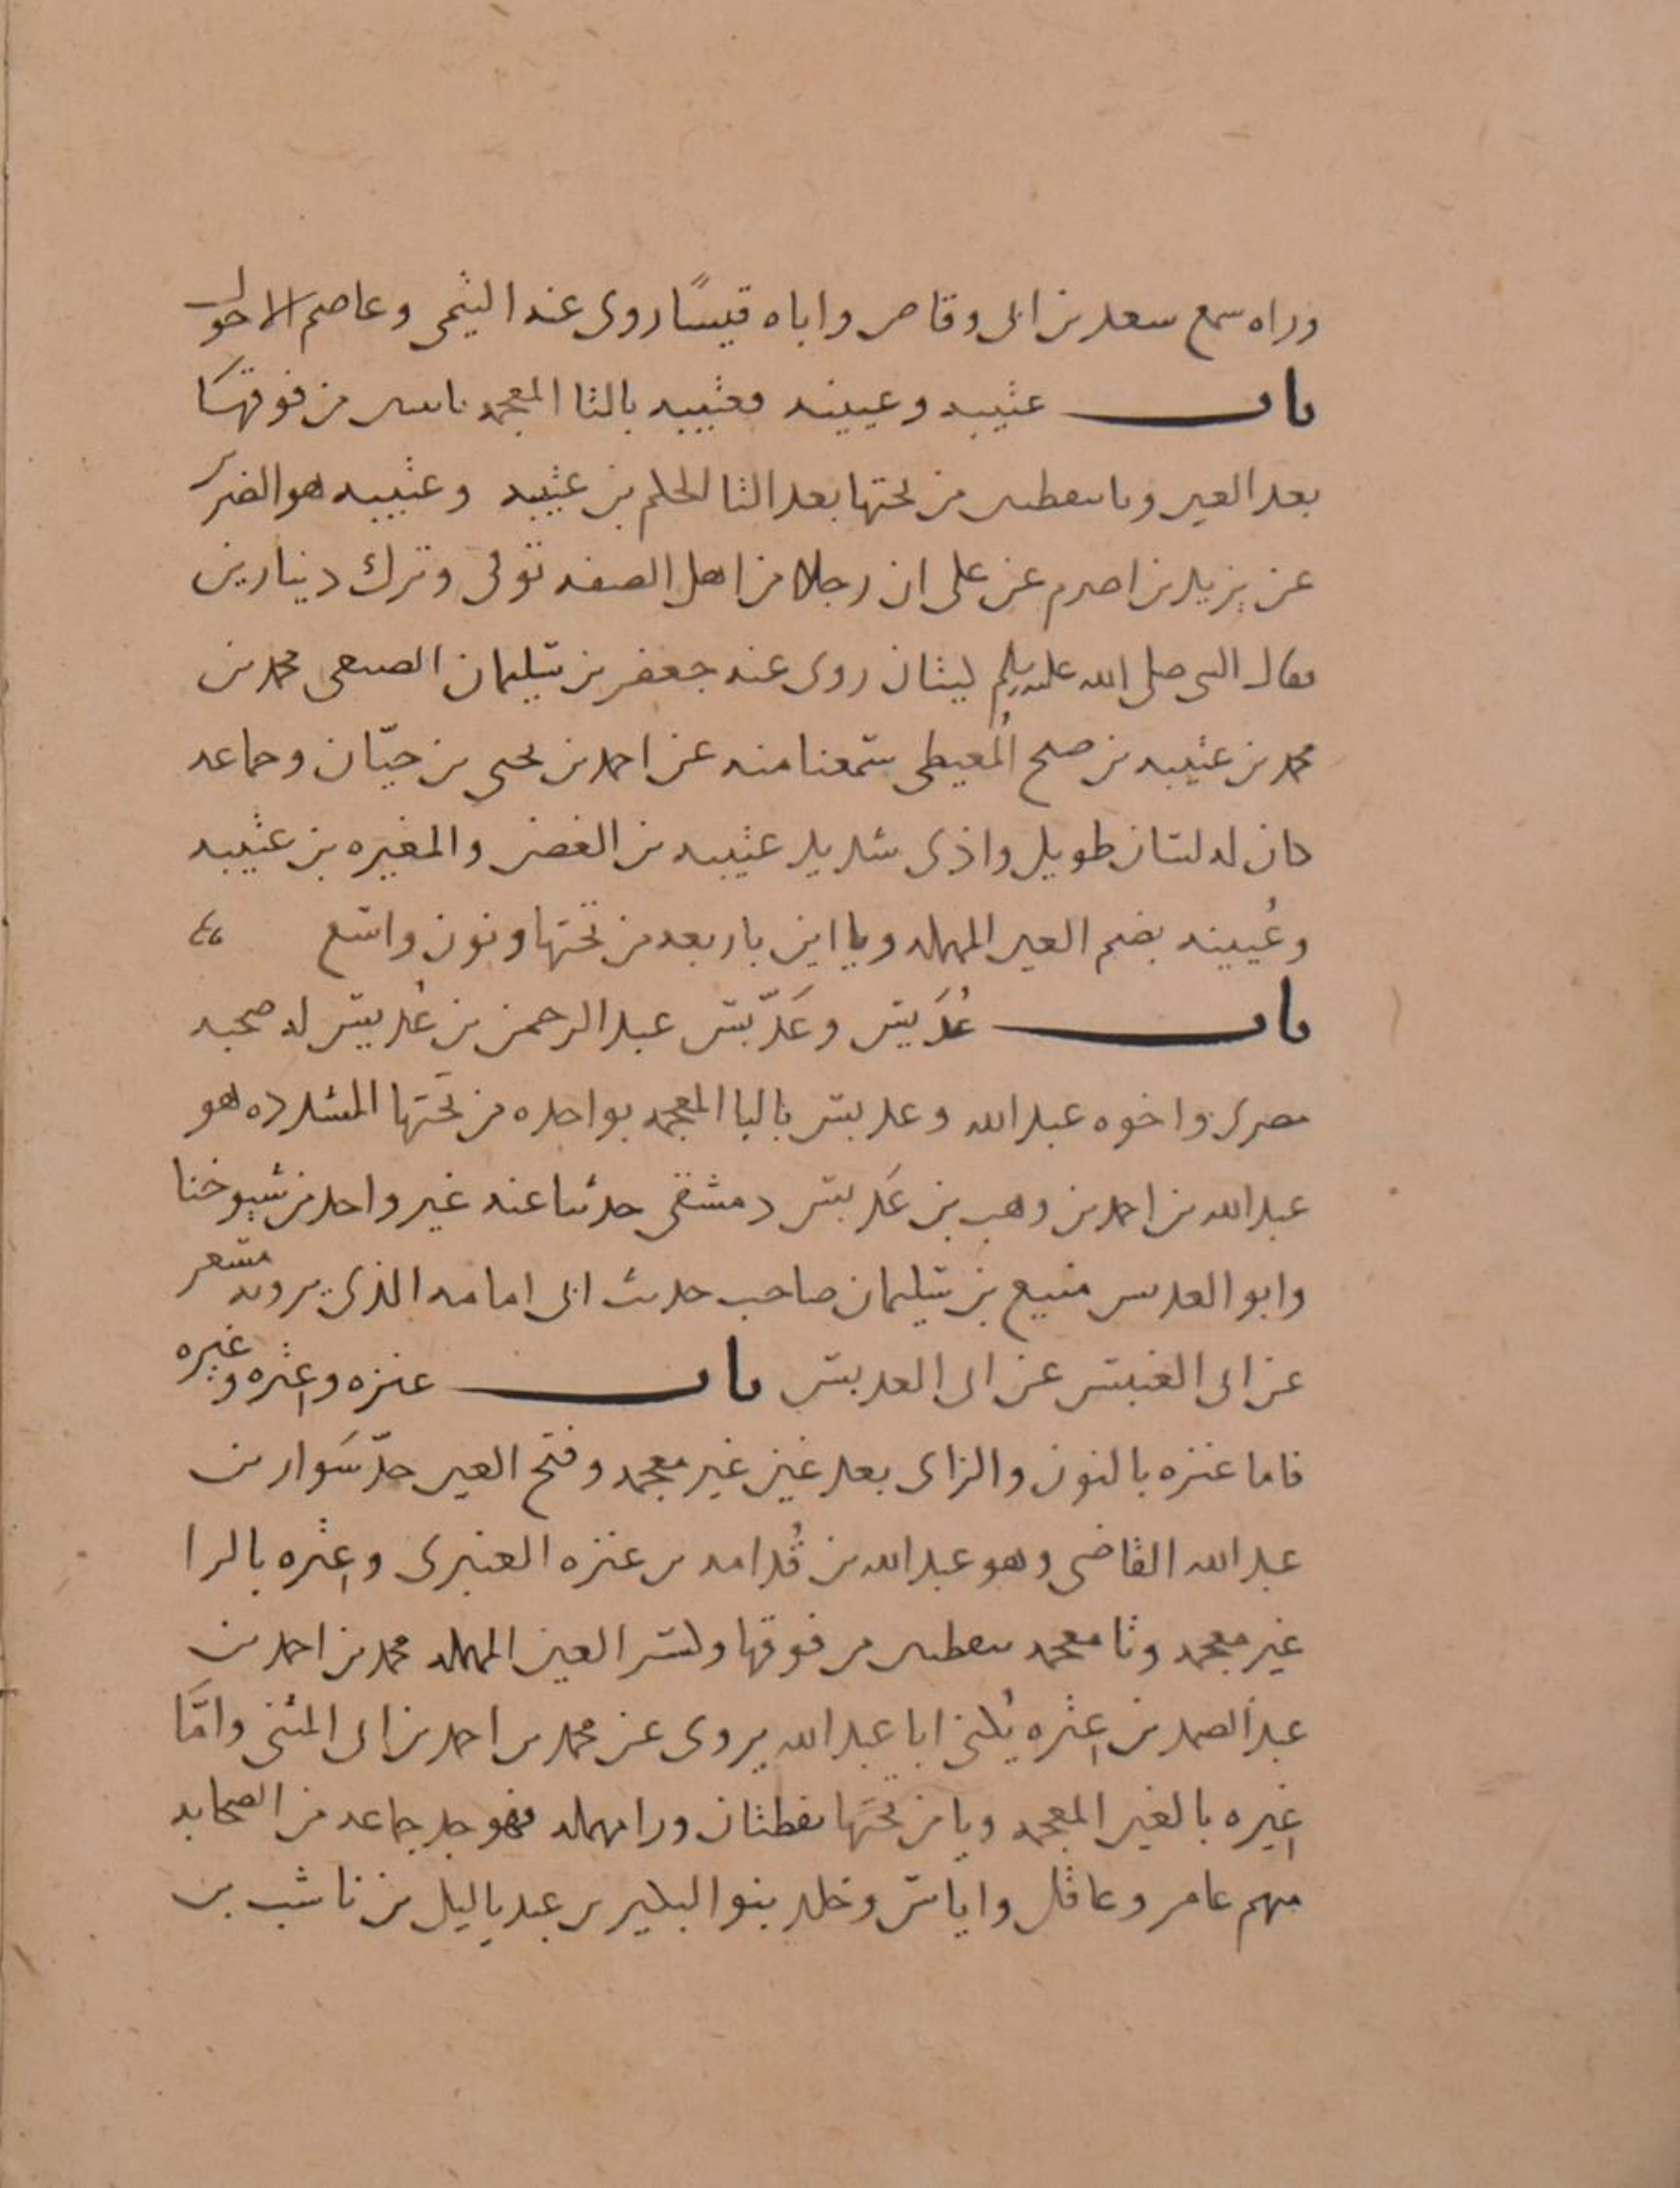 وراه سمع سعد بن ابى وقاص واباه قيسًا روى عنه التيمى وعاصم الاحول
باب عتيبه وعيينه فعتيبه بالتا المعجمه باثنين من فوقها
بعد العين وبا بنقطتين من تحتها بعد التا الحكم بن عتيبه وعتيبه هو الضرير
عن يزيد بن اصرم عن على ان رجلا من اهل الصفه توفى وترك دينارين
فقال النبى صلى الله عليه وسلم كيتان روى عنه جعفر بن سليمان الضبعى محمد بن
محمد بن عتيبه بن صلح المُعيطى سمعنا منه عن احمد بن يحيى بن حيّان وجماعه
كان له لسان طويل واذى شديد عتيبه بن الغصن والمغيره بن عتيبه
وعُيينه بضم العين المهمله ويا اين باربعه من تحتها ونون واسع
باب عُدَيس وعَدَبّس عبد الرحمن بن عُديس له صحبه
مصرى واخوه عبد الله وعدبس بالبا المعجمه بواحده من تحتها المشدده هو
عبد الله بن احمد بن وهب بن عَدبس دمشقى حدثنا عنه غير واحد من شيوخنا
وابو العدبس منيع بن سليمان صاحب حديث ابى امامه الذى يرويه مسعر
عن ابى العنبس عن ابى العدبس باب عنزه وعتره وغيره
فاما عنزه بالنون والزاى بعد عين غير معجمه وفتح العين جدّ سَوار بن
عبد الله القاضى وهو عبد الله بن قُدامه بن عنزه العنبرى وعتره بالرا
غير معجمه وتا معجمه بنقطتين من فوقها وكسر العين المهمله محمد بن احمد بن
عبد الصمد بن عتره يُكنى ابا عبد الله يروى عن محمد بن احمد بن ابى المثنى وامّا
غيره بالغين المعجمه ويا من تحتها نقطتان ورا مهمله فهو جد جماعه من الصحابه
منهم عامر وعاقل واياس وخلد بنو البكير بن عبد ياليل بن ناشب بن